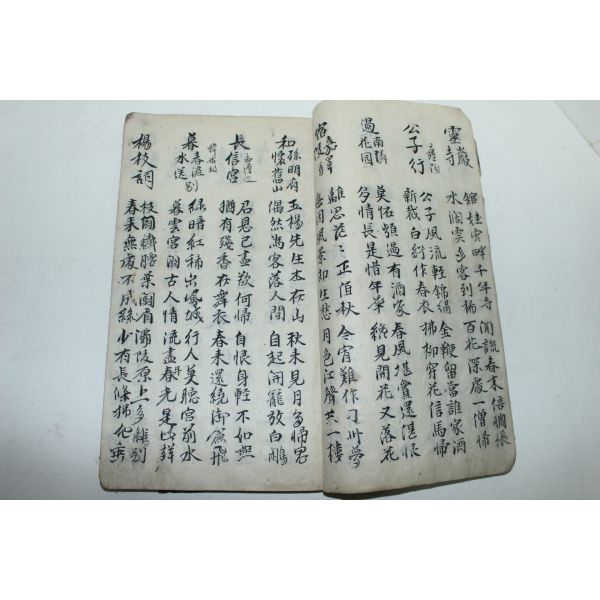 靈巖寺
館娃宮畔千年寺 聞說春來倍惆悵
水闊雲多客到稀 百花深處一僧歸
公子行 雍陶
公子風流輕錦綉 金鞭留當誰家酒
新裁白紵作春衣 拂柳穿花信馬歸
過南隣花園
莫怪頻過有酒家 春風堪賞還堪恨
多情長是惜年華 纔見開花又落花
宿嘉陵驛
離思茫茫正值秋 今宵難作刀州夢
每因風景却生愁 月色江聲共一樓
和孫明府懷舊山
五楊先生本在山 秋來見月多歸思
偶然為客落人間 自起開籠放白鷴
長信宮 孟遲
君恩已盡欲何歸 自恨身輕不如燕
猶有殘香在舞衣 春來還繞御簾飛
暮春滻水送別 韓琮
綠暗紅稀出鳳城 行人莫聽宮前水
暮雲宮闕古人情 流盡春光是此聲
楊枝詞
枝鬪纖腰葉鬪眉 灞陵原上多離別
春來無處不成絲 少有長條拂地垂